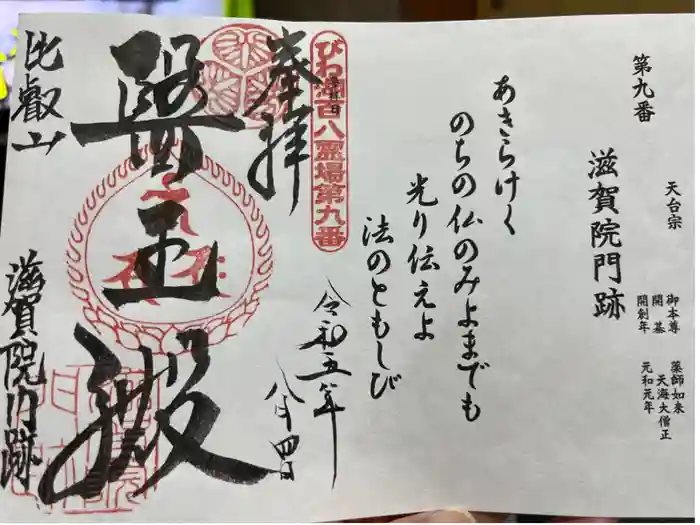 第九番
天台宗
滋賀院門跡
御本尊 薬師如来
開基 天海大僧正
開創年 元和元年
あきらけく
のちの仏のみよまでも
光り伝えよ
法のともしび
びわ湖百八霊場第九番
奉拝
令和五年
八月四日
醫王殿
比叡山
滋賀院門跡